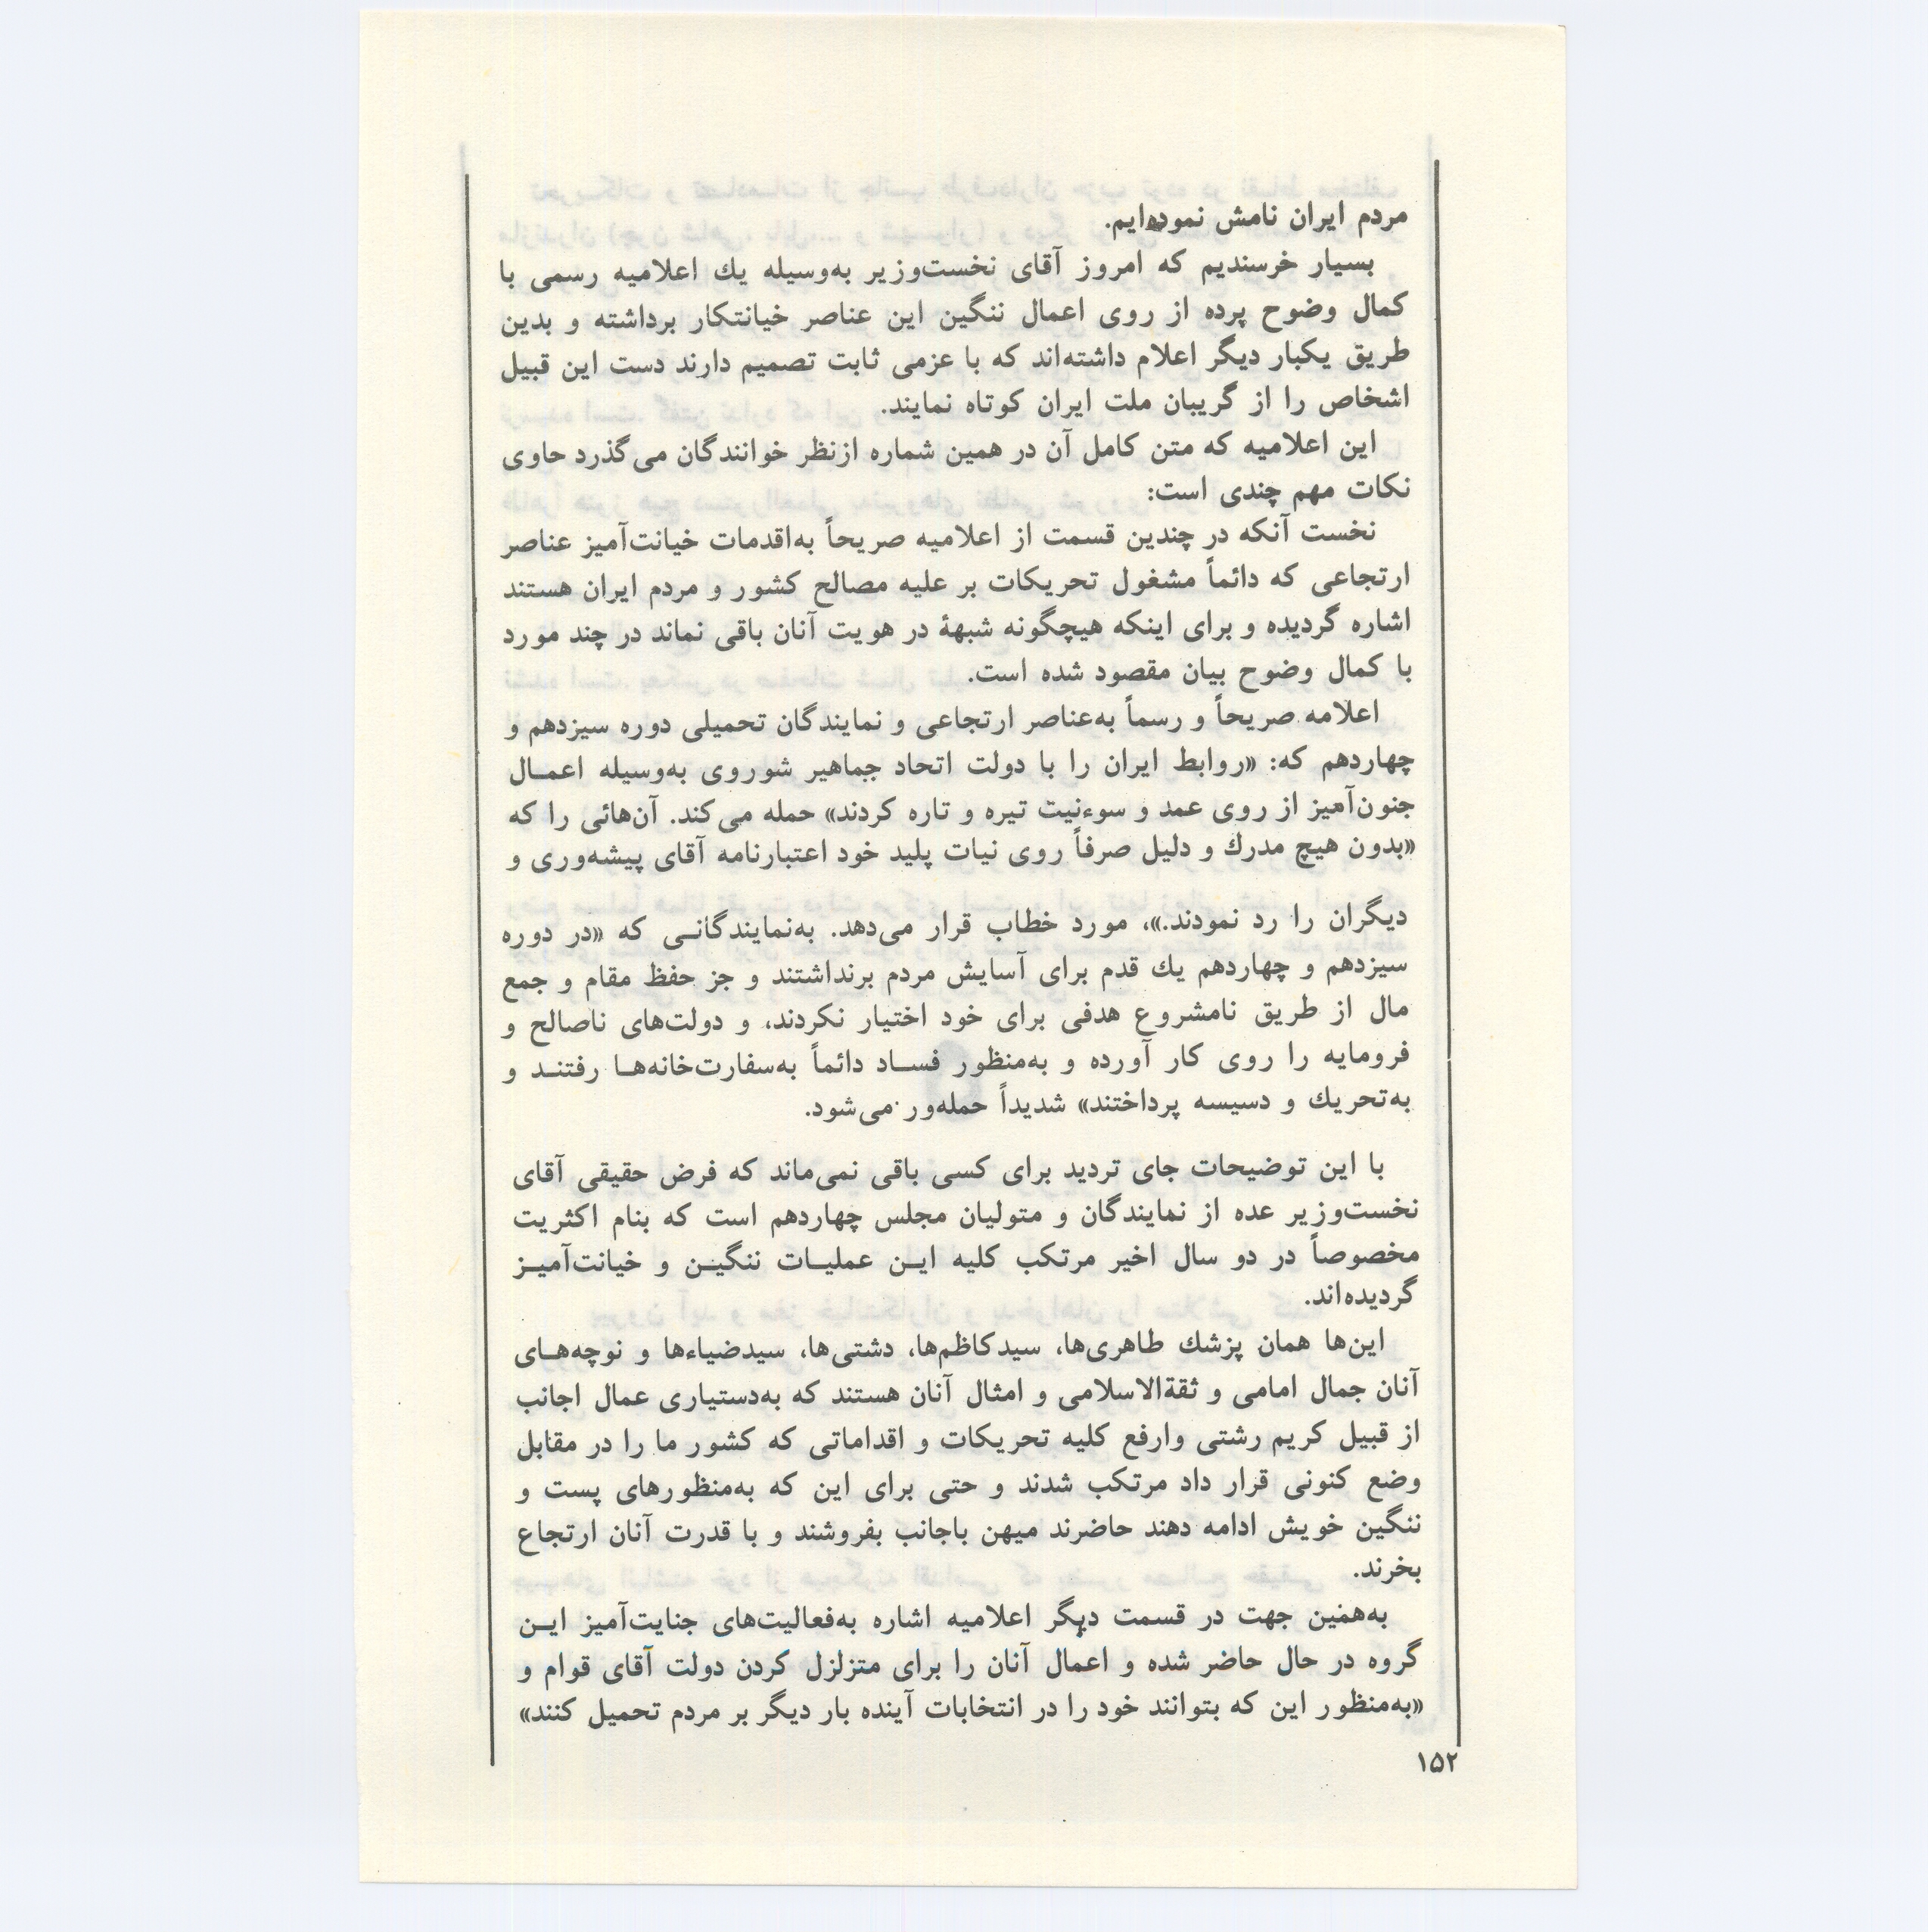 مردم ایران نامش نموده‌ایم.
بسیار خرسندیم که امروز آقای نخست‌وزیر به‌وسیله یك اعلامیه رسمی با
کمال وضوح پرده از روی اعمال ننگین این عناصر خیانتکار برداشته و بدین
طریق یکبار دیگر اعلام داشته‌اند که با عزمی ثابت تصمیم دارند دست این قبیل
اشخاص را از گریبان ملت ایران کوتاه نمایند.
این اعلامیه که متن کامل آن در همین شماره ازنظر خوانندگان می‌گذرد حاوی
نکات مهم چندی است:
نخست آنکه در چندین قسمت از اعلامیه صریحاً به‌اقدمات خیانت‌آمیز عناصر
ارتجاعی که دائماً مشغول تحریکات بر علیه مصالح کشور و مردم ایران هستند
اشاره گردیده و برای اینکه هیچگونه شبههٔ در هویت آنان باقی نماند در چند مورد
با کمال وضوح بیان مقصود شده است.
اعلامه صریحاً و رسماً به‌عناصر ارتجاعی و نمایندگان تحمیلی دوره سیزدهم و
چهاردهم که: «روابط ایران را با دولت اتحاد جماهیر شوروی به‌وسیله اعمـال
جنون‌آمیز از روی عمد و سوءنیت تیره و تاره کردند» حمله می‌کند. آن‌هائی را که
«بدون هیچ مدرك و دلیل صرفاً روی نیات پلید خود اعتبارنامه آقای پیشه‌وری و
دیگران را رد نمودند.»، مورد خطاب قرار می‌دهد. به‌نمایندگانـی که «در دوره
سیزدهم و چهاردهم یك قدم برای آسایش مردم برنداشتند و جز حفظ مقام و جمع
مال از طریق نامشروع هدفی برای خود اختیار نکردند، و دولت‌های ناصالح و
فرومایه را روی کار آورده و به‌منظور فسـاد دائماً به‌سفارت‌خانه‌هـا رفتنـد و
به‌تحریك و دسیسه پرداختند» شدیداً حمله‌ور می‌شود.
با این توضیحات جای تردید برای کسی باقی نمی‌ماند که فرض حقیقی آقای
نخست‌وزیر عده از نمایندگان و متولیان مجلس چهاردهم است که بنام اکثریت
مخصوصاً در دو سال اخیر مرتکب کلیه ایـن عملیـات ننگیـن و خیانت‌آمیـز
گردیده‌اند.
این‌ها همان پزشك طاهری‌ها، سیدکاظم‌ها، دشتی‌ها، سیدضیاءها و نوچه‌هـای
آنان جمال امامی و ثقةالاسلامی و امثال آنان هستند که به‌دستیاری عمال اجانب
از قبیل کریم رشتی وارفع کلیه تحریکات و اقداماتی که کشور ما را در مقابل
وضع کنونی قرار داد مرتکب شدند و حتی برای این که به‌منظورهای پست و
ننگین خویش ادامه دهند حاضرند میهن باجانب بفروشند و با قدرت آنان ارتجاع
بخرند.
به‌همین جهت در قسمت دیگر اعلامیه اشاره به‌فعالیت‌های جنایت‌آمیز ایـن
گروه در حال حاضر شده و اعمال آنان را برای متزلزل کردن دولت آقای قوام و
«به‌منظور این که بتوانند خود را در انتخابات آینده بار دیگر بر مردم تحمیل کنند»
۱۵۲